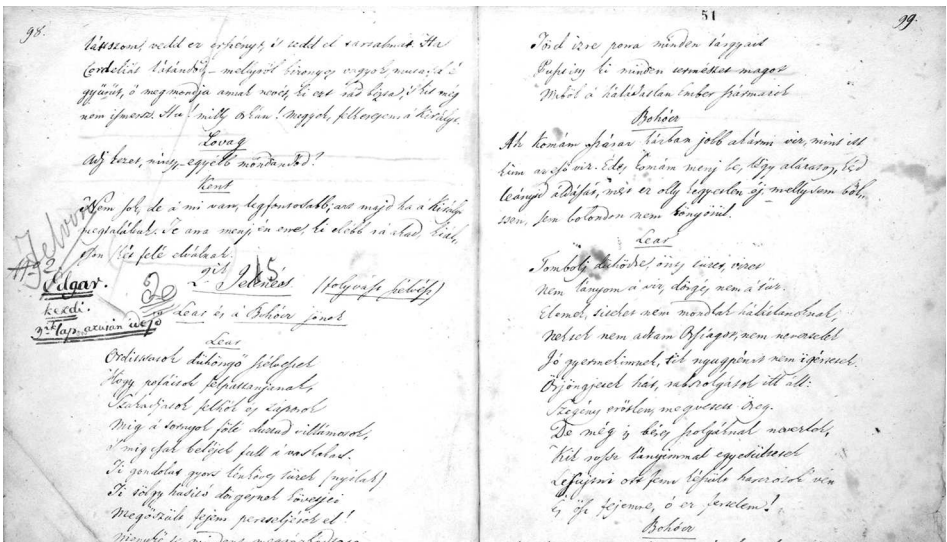 98.
látszom, vedd ez erszényt, és vedd el tartalmát. Ha
Cordeliát látandod, – mellyről bizonyos vagyok, mutasd e
gyűrűt, ő megmondja annak nevét, ki ezt rád bizta, s kit még
nem ismersz. Hu! milly orkan! megyek, felkeresem a királyt.
Lovag
Adj kezet, nincs egyébb mondandód?
Kent
Nem sok, de a mi van, legfontosabb; azt majd ha a királyt
megtaláltuk. Te arra menj én erre, ki elébb rá akad, kiált,
Edgar.
kezdi.
3-ik lap, azután
2- Jelenés
Lear és a Bohócz jönok
Lear
Orditsatok dühöngő szélvészek
Hogy pofáitok felpattanjanak,
Szakadjatok felhők és záporok
Mig a tornyok fölé
Ti gondolat gyors kénköves tüzek (nyilak)
Ti tölgy hasitó dörgesnek követjei
Megőszült fejem perzseljétek el!
51
99.
Törd izre pona minden tárgyait
Pusztits ki minden természet magot
Miből a háládatlan ember származik
Bohócz
Ah komám száraz házban jobb akármi viz, mint itt
künn az eső viz. Édes komám menj be, légy alázatos, kérd
leányid áldását, mert ez olly kegyetlen éj, melly sem bölt,
sen, sem bolondon nem könyörül.
Lear
Tombolj dühödre, önts tüzet, vizet
nem lányom a viz, dörgés nem a tűz.
Elemek, titeket nem mondlak háládatlannak,
Nektek nem adtam Országot, nem neveztelek
Jó gyermekimnek, tik nyugpénzt nem igértetek.
Őrjöngjetek hát, rabszolgátok itt áll:
Szegény erőtlen, megvetett öreg.
De még is bérész szolgáknak nevezlek,
Kik rossz lányimmal egyesültetek
és ősz fejemre, ó ez szerelem!
Bohócz